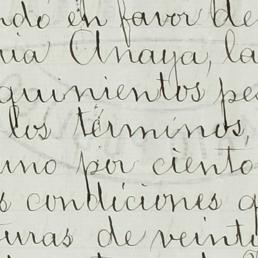 ndo en favor de
ria Anaya, la
quinientos pe
los términos,
uno por ciento
s condiciones q
turas de veinti